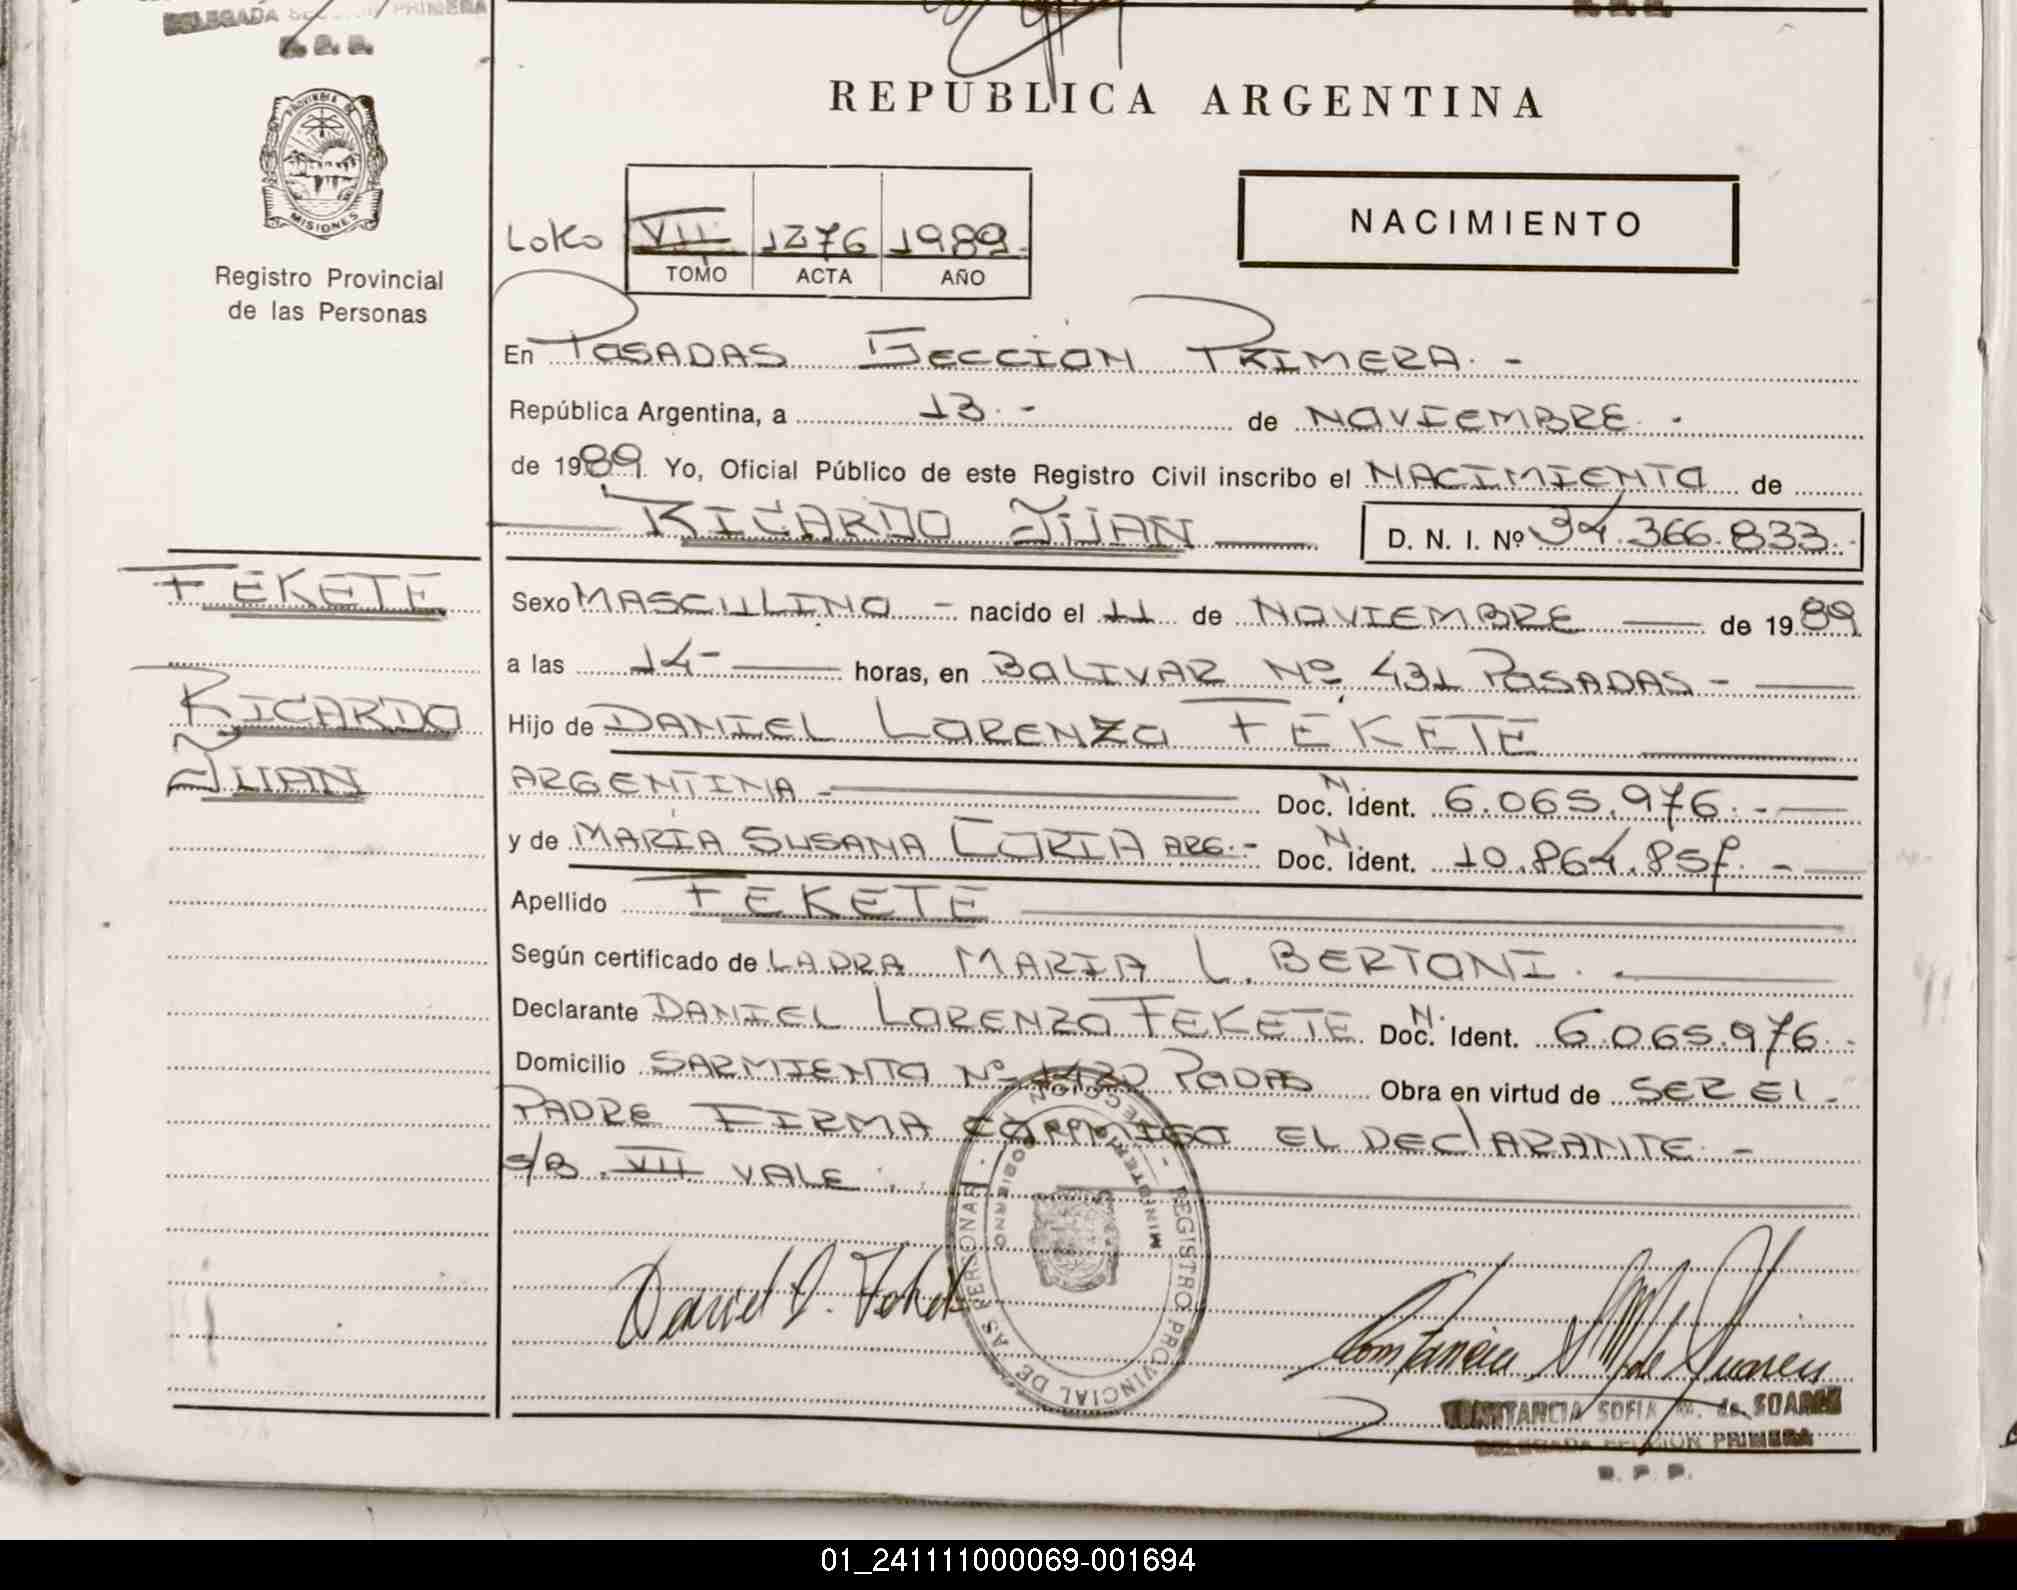 DELEGADA SECCION PRIMERA
R. P. P.
PROVINCIA DE
MISIONES
Registro Provincial
de las Personas
REPUBLICA ARGENTINA
NACIMIENTO
LOKO VII 1276 1989.-
TOMO ACTA AÑO
En POSADAS SECCION PRIMERA.-
República Argentina, a 13.- de NOVIEMBRE.-
de 1989. Yo, Oficial Público de este Registro Civil inscribo el NACIMIENTO de
RICARDO JUAN D. N. I. Nº 34.366.833.-
FEKETE
RICARDO
JUAN
Sexo MASCULINO - nacido el 11 de NOVIEMBRE de 1989
a las 14- horas, en BOLIVAR Nº 431 POSADAS -
Hijo de DANIEL LORENZO FEKETE
ARGENTINA - Doc. N. Ident. 6.065.976.-
y de MARÍA SUSANA CORIA ARG.- Doc. N. Ident. 10.864.85
Apellido FEKETE
Según certificado de LA DRA MARIA L. BERTONI.
Declarante DANIEL LORENZO FEKETE. Doc. N. Ident. 6.065.976.-
Domicilio SARMIENTO Nº 1420 PODAS Obra en virtud de SER EL -
PADRE FIRMA CONMIGO EL DEClARANTE.-
S/B. VII VALE.
REGISTRO PROVINCIAL DE LAS PERSONAS
SECCION
GOBIERNO
Daniel L. Fekete
Constancia S. M. de Suarez
CONSTANCIA SOFIA M. de SOAREZ
DELEGADA SECCION PRIMERA
R. P. P.
01_241111000069-001694